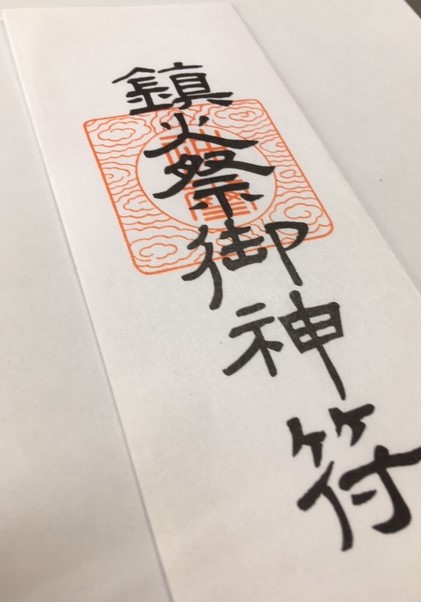 鎮火祭御神符